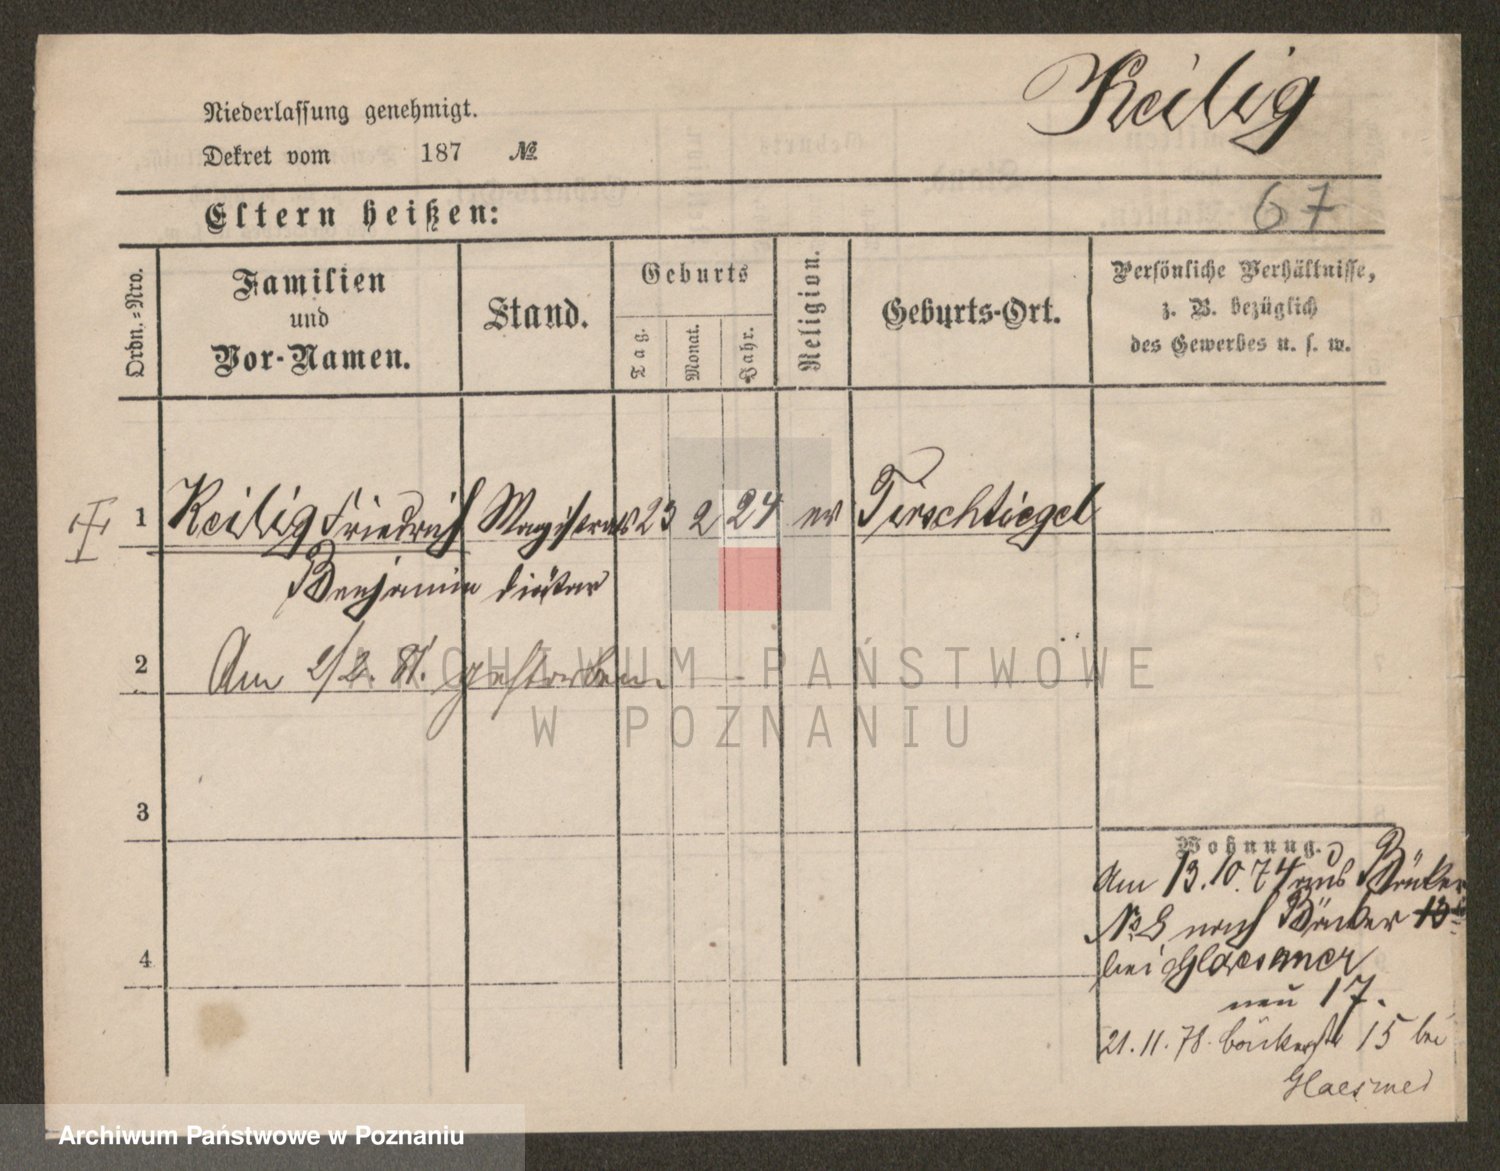 Keilig
Niederlassung genehmigt.
Dekret vom 187 №
67
Eltern heißen:
Ordn.-Nro.
Familien
und
Vor-Namen.
Stand.
Geburts
Tag.
Monat.
Jahr.
Religion.
Geburts-Ort.
Persönliche Verhältnisse,
z. B. bezüglich
des Gewerbes u. s. w.
1 Keilig Friedrich Magistrats 23 2 24 ev Tirschtiegel
Benjamin diätar
2 Am 2/2. 81. gestorben.
3
4
Wohnung.
Am 13.10.74 aus Bäcker
№ 8 nach Bäcker 13
bei Glaesmer
neu 17.
21.11.78. Bäckerstr 15 bei
Glaesmer
ARCHIWUM PAŃSTWOWE
W POZNANIU
Archiwum Państwowe w Poznaniu